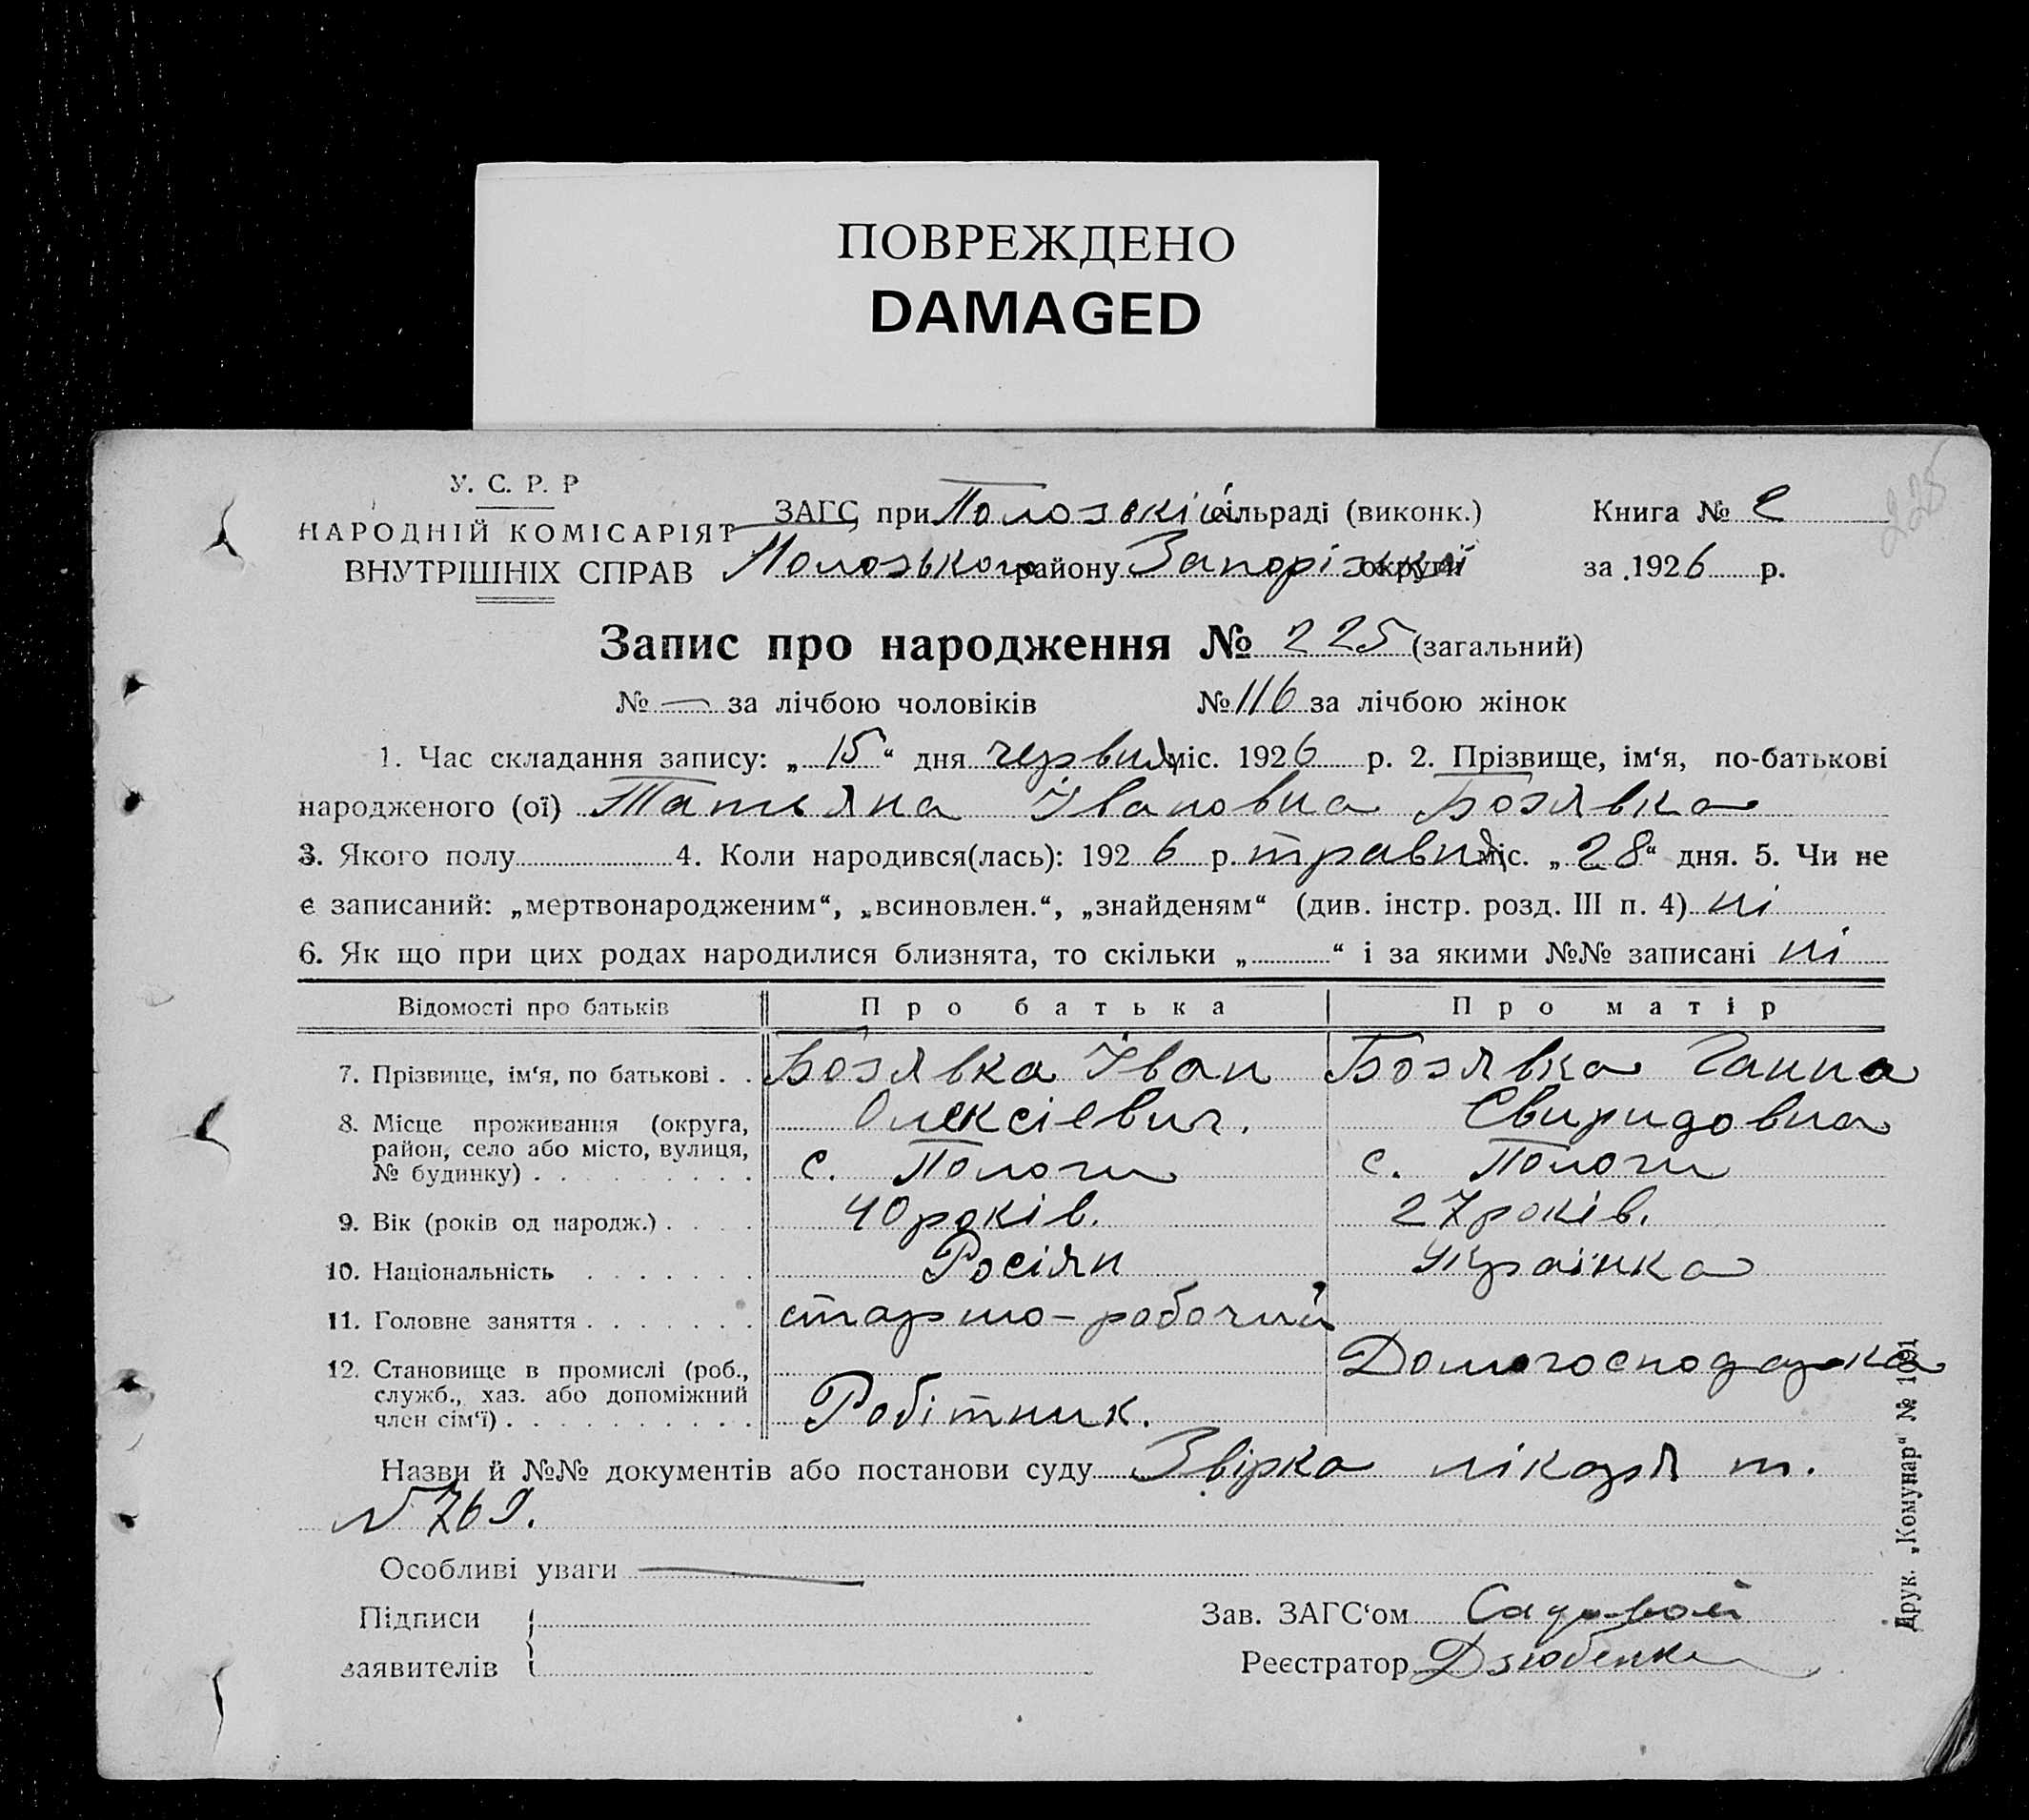 ПОВРЕЖДЕНО
DAMAGED
225
У. С. Р. Р
НАРОДНІЙ КОМІСАРІЯТ
ВНУТРІШНІХ СПРАВ
ЗАГС при Полозькій сільраді (виконк.)
Полозького району Запоріжкої округи
Книга №
за 1926 р.
Запис про народження № 225 (загальний)
№ — за лічбою чоловіків № 116 за лічбою жінок
1. Час складання запису: „ 15 “ дня червня міс. 1926 р. 2. Прізвище, ім‘я, по-батькові
народженого (ої) Татьяна Івановна Бозявка
3. Якого полу 4. Коли народився(лась): 1926 р. травня міс. „ 28 “ дня. 5. Чи не
є записаний: „мертвонародженим“, „всиновлен.“, „знайденям“ (див. інстр. розд. III п. 4) ні
6. Як що при цих родах народилися близнята, то скільки „ “ і за якими №№ записані ні
Відомості про батьків Про батька Про матір
7. Прізвище, ім‘я, по батькові . . Бозявка Іван Бозявка Ганна
Олексієвич. Свиридовна
8. Місце проживання (округа,
район, село або місто, вулиця,
№ будинку) . . . . . . . . . с. Пологи с. Пологи
9. Вік (років од народж.) . . . . 40 років. 27 років.
10. Національність . . . . . . . Росіян Українка
11. Головне заняття . . . . . . . робочий
12. Становище в промислі (роб.,
служб., хаз. або допоміжний
член сім‘ї) . . . . . . . . . . Робітник. Домогосподарка
Назви й №№ документів або постанови суду Звірка лікаря т.
N 769.
Особливі уваги —
Підписи
заявителів
Зав. ЗАГС‘ом Садовой
Реєстратор Дзюбенко
Друк. „Комунар“ № 1091